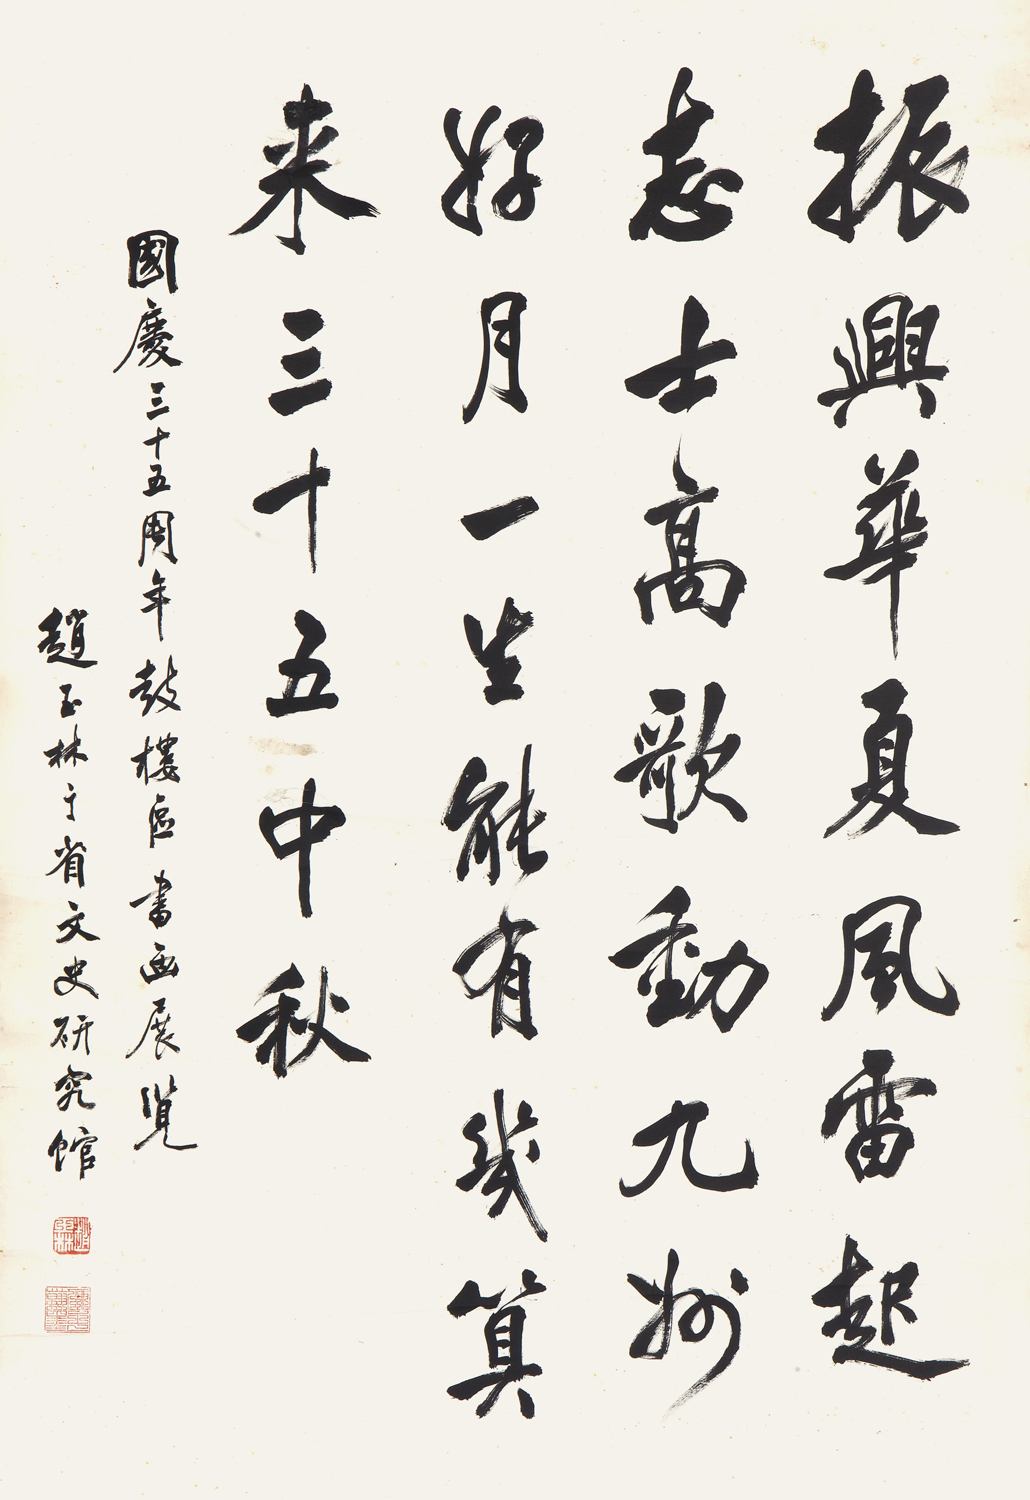 振興華夏風雷起
志士高歌動九州
好月一生能有幾算
来三十五中秋
國慶三十五周年鼓樓區書画展覽
趙玉林于省文史研究館